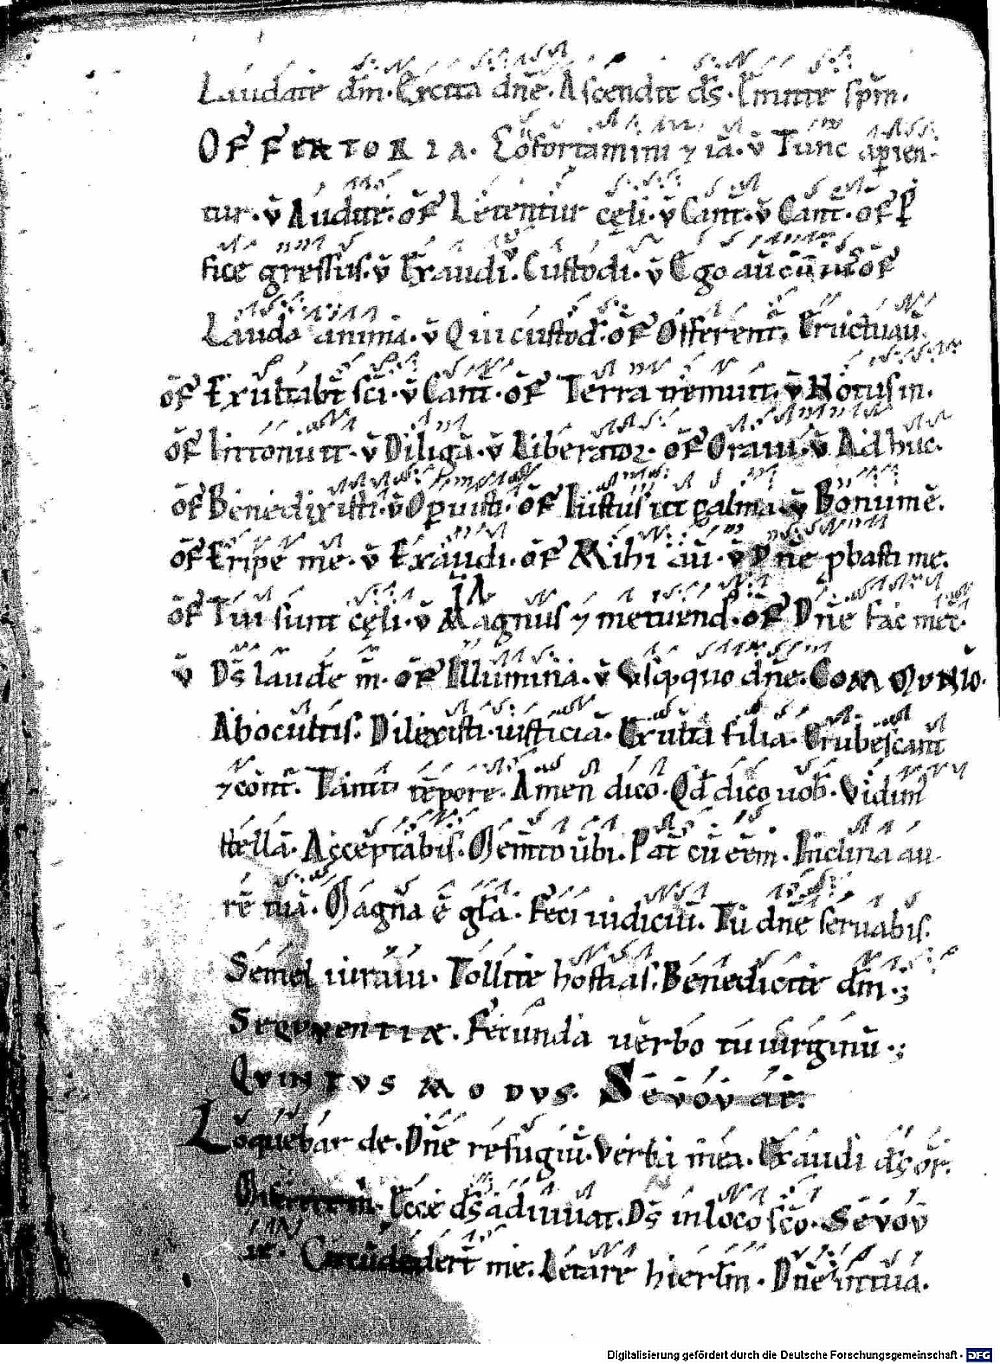 Laudate dm̄. Excita dn̄e. Ascendit ds̄. Emitte spm̄.
OFFERTORIA. Cōfortamini ⁊ iā. v̄ Tunc aperien-
tur. v̄ Audite. of̄ Letentur cęli. v̄ Cant̄. v̄ Cant̄. of̄ P
fice gressus. v̄ Exaudi. Custodi. v̄ Ego aū cū of̄
Lauda anima. v̄ Qui custod. of̄ Offerent̄. Eructuaū.
of̄ Exultabt̄ sc̄i. v̄ Cant̄. of̄ Terra tremuit. v̄ Notus in.
of̄ Intonuit. v̄ Diligā. v̄ Liberator. of̄ Oraui. v̄ Adhuc.
of̄ Benedixisti. v̄ Operuisti. of̄ Iustus ut palma. v̄ Bonumē.
of̄ Eripe me. v̄ Exaudi. of̄ Mihi aū. v̄ Dn̄e pbasti me.
of̄ Tui sunt cęli. v̄ Magnus ⁊ metuend. of̄ Dn̄e fac mec̄.
v̄ Ds̄ laudē m̄. of̄ Illumina. v̄ Usq;quo dn̄e. COMMVNIO.
Ab occultis. Dilexisti iusticiā. Exulta filia. Erubescant
⁊ cont̄. Tanto tēpore. Amen dico. Qd dico uob. Vidim̄
stellā. Acceptabis. Mem̄to ūbi. Pat̄ cū eēm. Inclina au-
rē tuā. Magna ē gl̄a. Feci iudiciū. Tu dn̄e seruabis.
Semel iuraui. Tollite hostias. Benedicite dm̄.;
SEQVENTIAE. Fecunda uerbo tu uirginū.;
QVINTVS MODVS. Sevovae.
Loquebar de. Dn̄e refugiū. Verba mea. Exaudi ds̄ or̄.
Ecce ds̄ adiuuat. Ds̄ in loco sc̄o. Sevov
ae. Circūdeder̄t me. Letare hierl̄m. Dn̄e in tua.
Digitalisierung gefördert durch die Deutsche Forschungsgemeinschaft - DFG